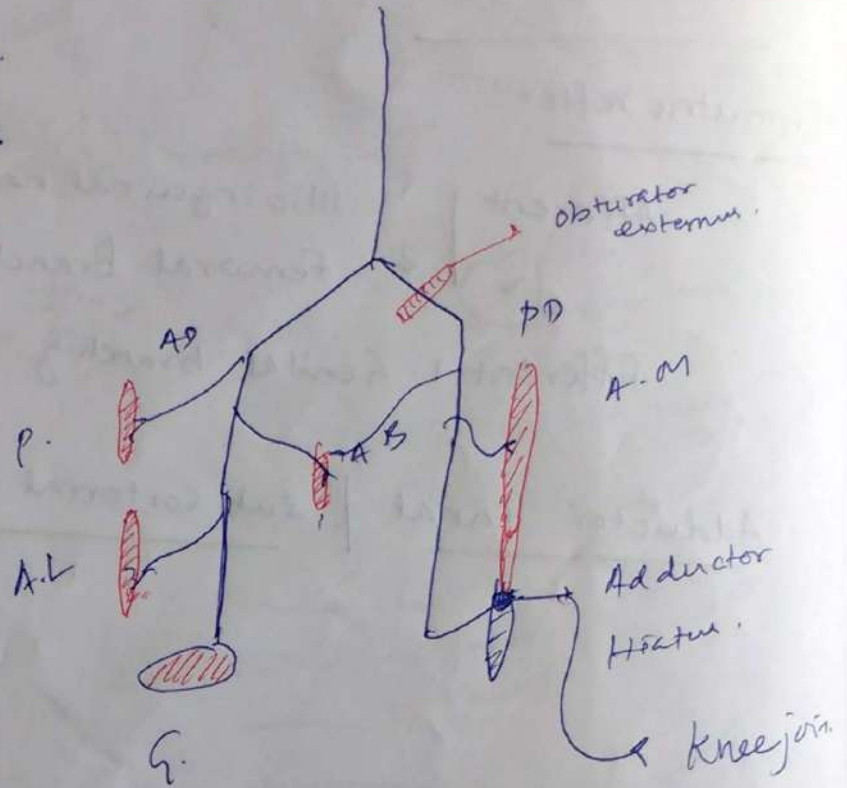 Obturator
externus.
AD
PD
A-M
P.
A B
A.L
Adductor
Hiatus.
G.
Kneejoin.